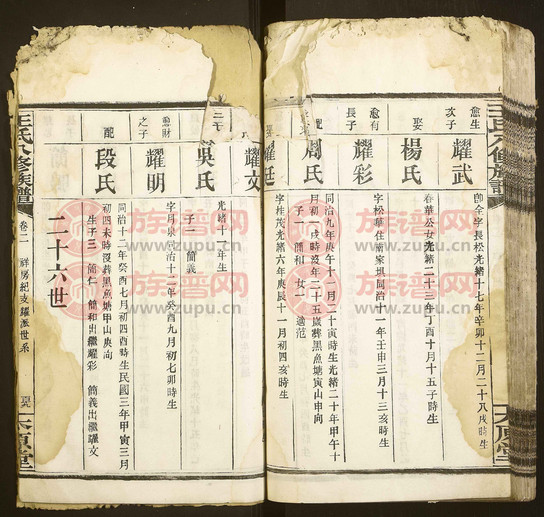 愈生
次子
耀武
字長松光緒十七年辛卯十二月二十八戌時生
娶
楊氏
春華公女光緒二十三年丁酉十月十五子時生
愈有
長子
耀彩
字松華住南家垻同治十一年壬申三月十三亥時生
配
周氏
同治九年庚午十一月二十寅時生光緒二十年甲午十
月初一戌時沒年二十五歲葬黑魚塘寅山申向
子一 簡和 女一 適范
耀廷
字桂茂光緒六年庚辰十一月初四亥時生
王氏八修族譜
太原堂
二子
耀文
吳氏
光緒十一年生
子一 簡義
愈財
之子
耀明
字月泉同治十二年癸酉九月初七卯時生
配
段氏
同治十二年癸酉七月初四酉時生民國三年甲寅三月
初十未時沒葬黑魚塘甲山庚向
生子三 簡仁 簡和出繼耀彩 簡義出繼耀文
二十六世
王氏八修族譜
卷二
祥房紀支耀派世系
太原堂
族譜网
www.zupu.cn
族譜网
www.zupu.cn
族譜网
www.zupu.cn
族譜网
www.zupu.cn
族譜网
www.zupu.cn
族譜网
www.zupu.cn